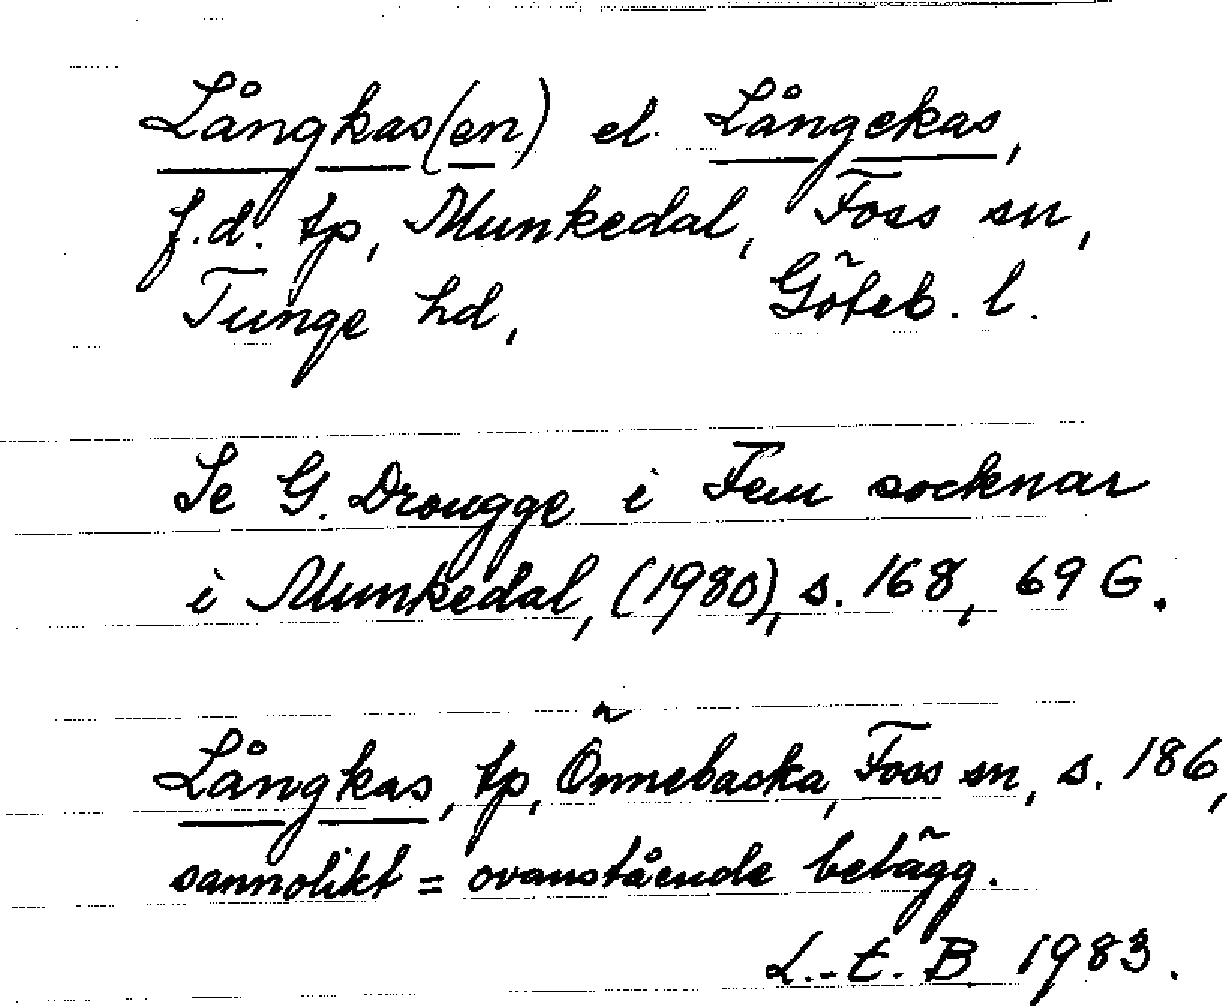 Långkas(en) el. Långekas,
f.d. tp, Munkedal, Foss sn,
Tunge hd, Göteb. l.
Se G. Drougge i Fem socknar
i Munkedal, (1980), s. 168, 69 G.
Långkas, tp, Önnebacka, Foss sn, s. 186,
sannolikt = ovanstående belägg.
L.-E. B 1983.